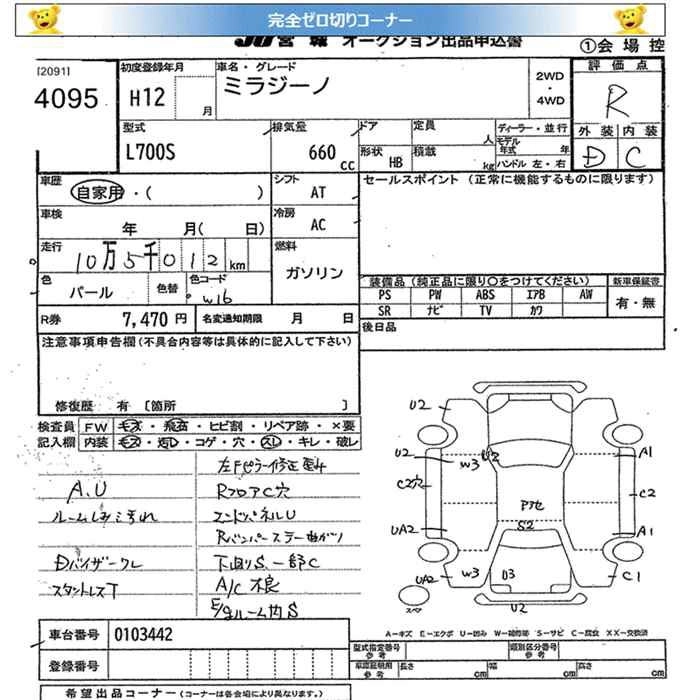 完全ゼロ切りコーナー
JU宮城 オークション出品申込書
①会場控
[2091]
4095
初度登録年月
H12 月
車名・グレード
ミラジーノ
2WD
・
4WD
評価点
R
外装 内装
D C
型式
L700S
排気量
660 cc
ドア
形状 HB
定員 人
積載 kg
ディーラー・並行
モデル年式 年
ハンドル 左・右
車歴
自家用・( )
シフト
AT
セールスポイント (正常に機能するものに限ります)
車検
年 月( 日)
冷房
AC
走行
10万5千012km
燃料
ガソリン
色
パール
色替
色コード
W16
装備品(純正品に限り○をつけてください)
新車保証書
PS PW ABS エアB AW
有・無
SR ナビ TV カワ
R券 7,470円
名変通知期限 月 日
後日品
注意事項申告欄(不具合内容等は具体的に記入して下さい)
修復歴 有 〔箇所 〕
検査員 FW キズ・飛石・ヒビ割・リペア跡・×要
記入欄 内装 キズ・汚レ・コゲ・穴・スレ・キレ・破レ
左Fピラー修正
A.U
RフロアC穴
ルームしみ汚れ
エンドパネルU
Rバンパーステー曲がり
Dバイザーワレ
下廻りS 一部C
スタントレスT
A/C不良
E/gルーム内S
U2
U2
W3
U2
A1
C2穴
C2
アクセ
S2
UA2
A1
UA2
W3
U3
C1
スペア
U2
A=キズ E=エクボ U=凹み W=補修跡 S=サビ C=腐食 XX=交換済
車台番号 0103442
登録番号
型式指定番号
参考
類別区分番号
参考
車庫証明用
参考
長さ cm
幅 cm
高さ cm
希望出品コーナー(コーナーは各会場により異なります。)